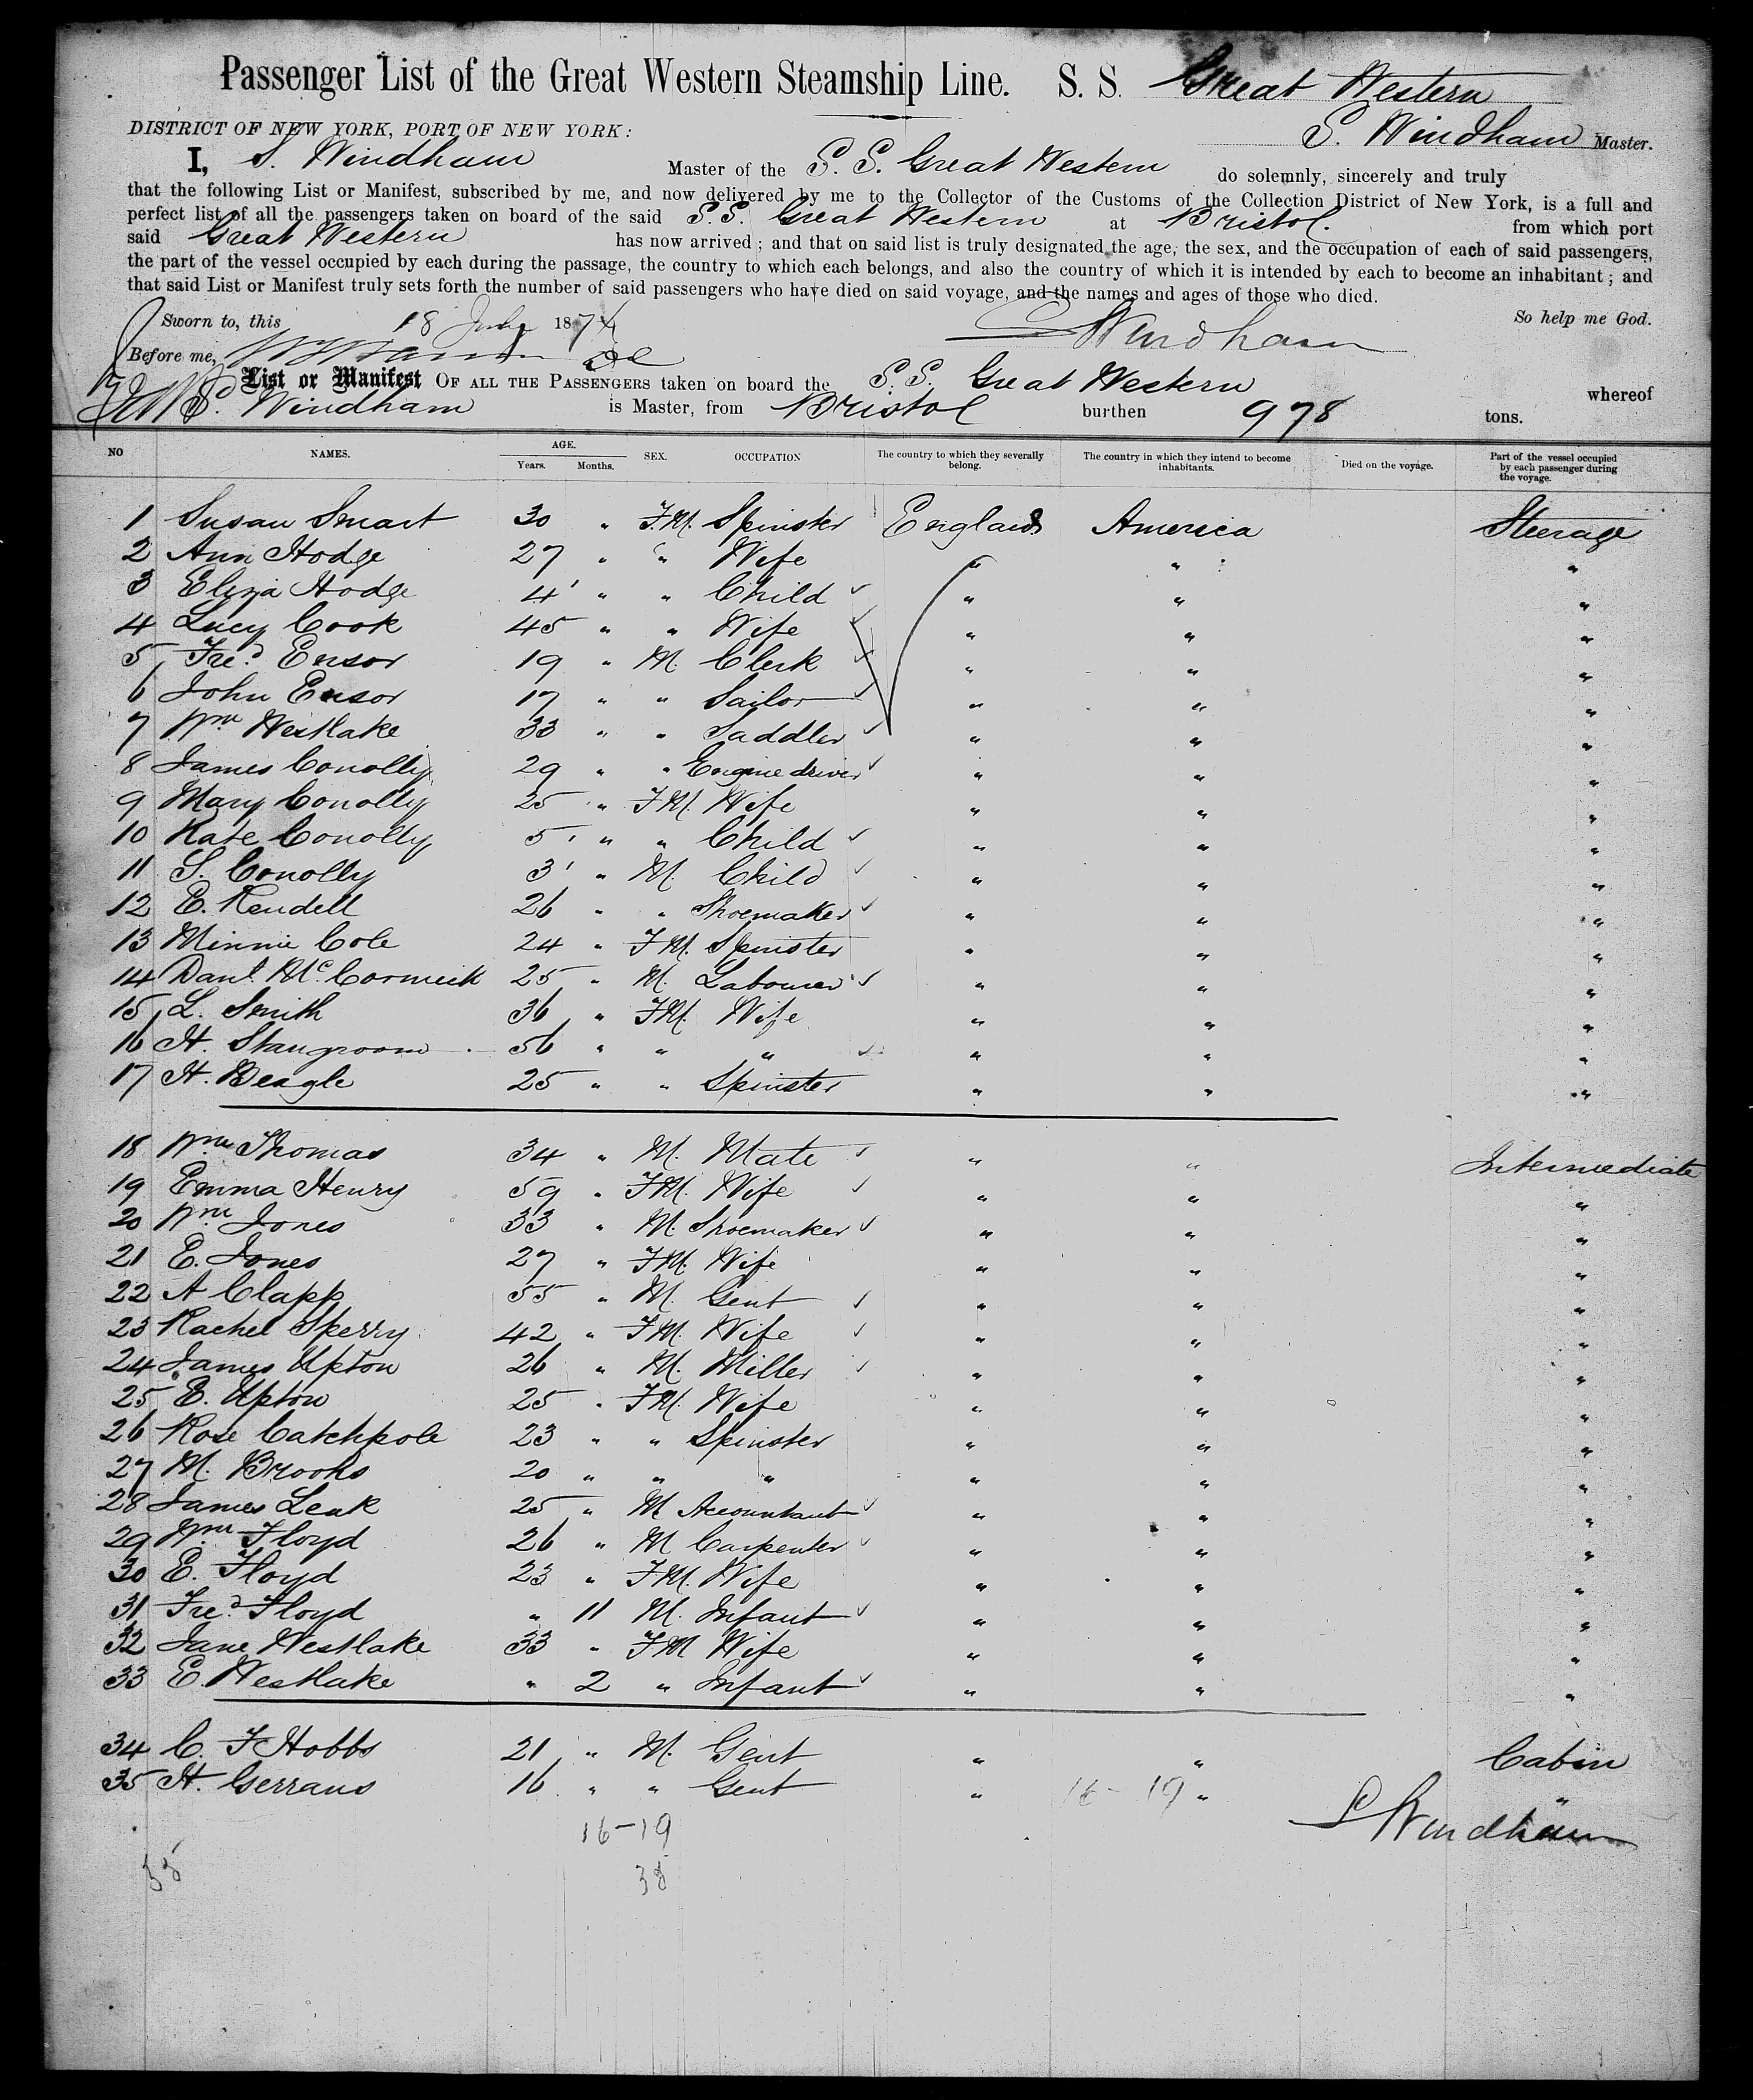 Passenger List of the Great Western Steamship Line. S. S. Great Western
S. Windham Master.
DISTRICT OF NEW YORK, PORT OF NEW YORK:
I, S. Windham Master of the S. S. Great Western do solemnly, sincerely and truly
that the following List or Manifest, subscribed by me, and now delivered by me to the Collector of the Customs of the Collection District of New York, is a full and
perfect list of all the passengers taken on board of the said S. S. Great Western at Bristol. from which port
said Great Western has now arrived; and that on said list is truly designated the age, the sex, and the occupation of each of said passengers,
the part of the vessel occupied by each during the passage, the country to which each belongs, and also the country of which it is intended by each to become an inhabitant; and
that said List or Manifest truly sets forth the number of said passengers who have died on said voyage, and the names and ages of those who died.
Sworn to, this 18 July 1874 So help me God.
S Windham
Before me,
List or Manifest OF ALL THE PASSENGERS taken on board the S. S. Great Western whereof
S. Windham is Master, from Bristol burthen 978 tons.
NO NAMES. AGE. Years. Months. SEX. OCCUPATION The country to which they severally belong. The country in which they intend to become inhabitants. Died on the voyage. Part of the vessel occupied by each passenger during the voyage.
1 Susan Smart 30 " F.M. Spinster England America Steerage
2 Ann Hodge 27 " " Wife " " "
3 Eliza Hodge 4 " " Child " " "
4 Lucy Cook 45 " " Wife " " "
5 Fred Ensor 19 " M. Clerk " " "
6 John Ensor 17 " " Sailor " " "
7 Wm Westlake 33 " " Saddler " " "
8 James Conolly 29 " " Engine driver " " "
9 Mary Conolly 25 " F.M. Wife " " "
10 Kate Conolly 5 " " Child " " "
11 S. Conolly 3 " M. Child " " "
12 E. Kendell 26 " " Shoemaker " " "
13 Minnie Cole 24 " F.M. Spinster " " "
14 Danl. McCormick 25 " M. Labourer " " "
15 L. Smith 36 " F.M. Wife " " "
16 H. Stangroom 56 " " " " " "
17 H. Beagle 25 " " Spinster " " "
18 Wm Thomas 34 " M. Mate " " Intermediate
19 Emma Henry 59 " F.M. Wife " " "
20 Wm Jones 33 " M. Shoemaker " " "
21 E. Jones 27 " F.M. Wife " " "
22 A Clapp 55 " M. Gent " " "
23 Rachel Sperry 42 " F.M. Wife " " "
24 James Upton 26 " M. Miller " " "
25 E. Upton 25 " F.M. Wife " " "
26 Rose Catchpole 23 " " Spinster " " "
27 M. Brooks 20 " " " " " "
28 James Leak 25 " M Accountant " " "
29 Wm Floyd 26 " M Carpenter " " "
30 E. Floyd 23 " F.M. Wife " " "
31 Fred Floyd " 11 M. Infant " " "
32 Jane Westlake 33 " F.M Wife " " "
33 E. Westlake " 2 " Infant " " "
34 C. F Hobbs 21 " M. Gent " " Cabin
35 H. Gerrans 16 " " Gent " 16-19 " "
S Windham
16-19
35 35